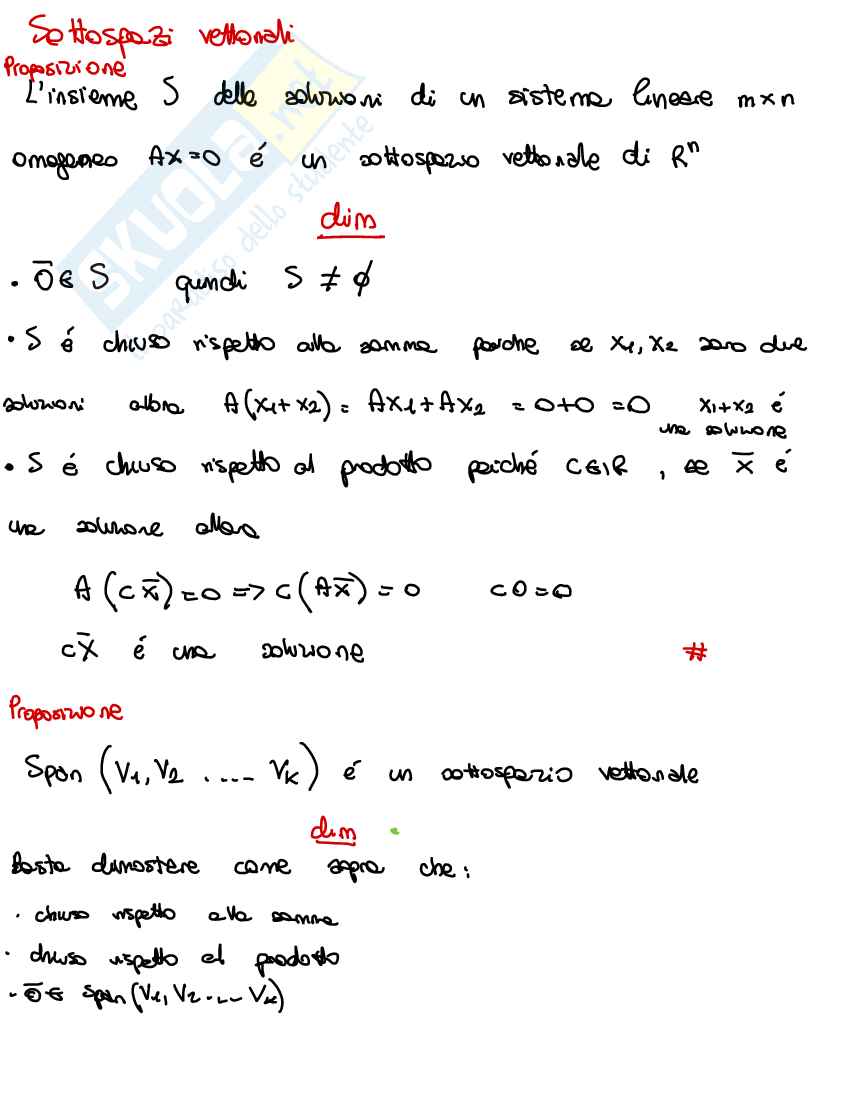 Sottospazi vettoriali
Proposizione
L'insieme S delle soluzioni di un sistema lineare m×n
omogeneo AX=0 é un sottospazio vettoriale di Rⁿ
dim
• 0̅ ∈ S quindi S ≠ ∅
• S é chiuso rispetto alla somma perche se x₁, x₂ sono due
soluzioni allora A(x₁+x₂) = Ax₁+Ax₂ = 0+0 =0 x₁+x₂ é
una soluzione
• S é chiuso rispetto al prodotto perché C∈ℝ, se x̅ é
una soluzione allora
A(cx̅)=0 => c(Ax̅) = 0 c0=0
cx̅ é una soluzione #
Proposizione
Span (V₁, V₂ ..... Vₖ) é un sottospazio vettoriale
dim
Basta dimostrare come sopra che:
• chiuso rispetto alla somma
• chiuso rispetto al prodotto
• 0̅ ∈ Span (V₁, V₂ ..... Vₖ)
SKUOLA.net
il paradiso dello studente